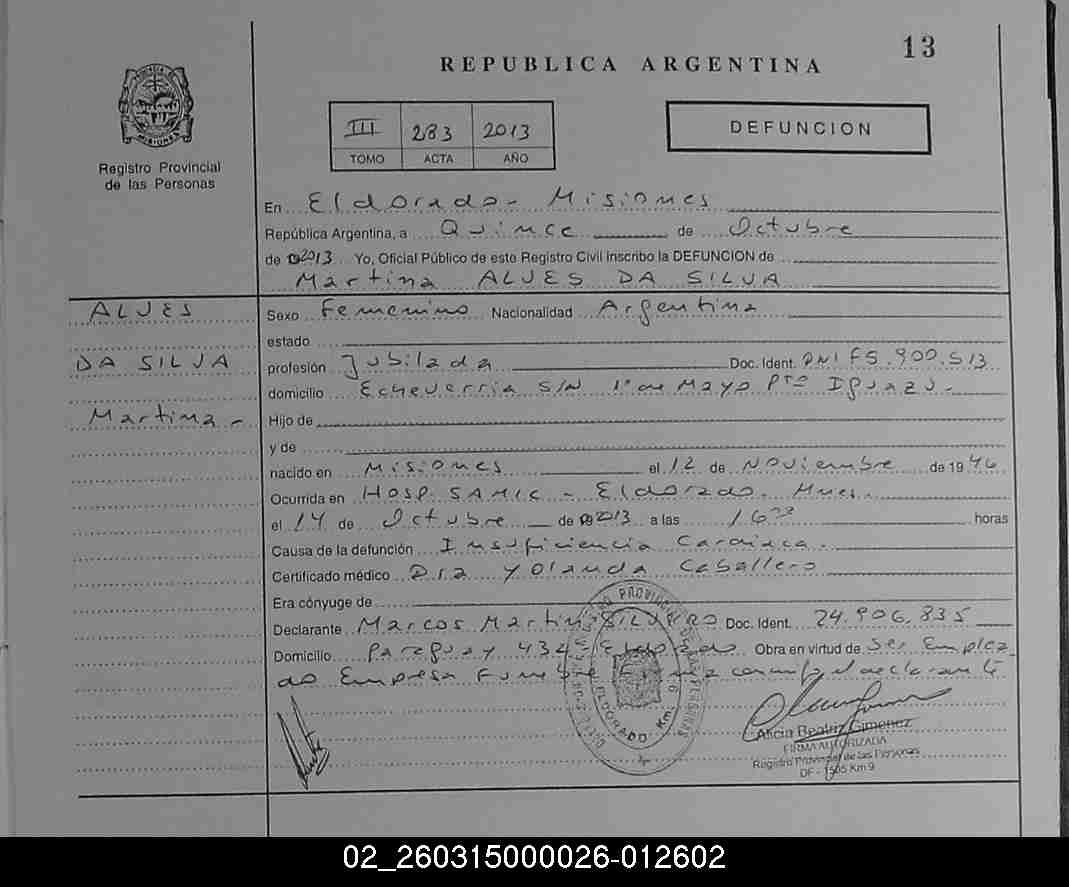 13
REPUBLICA ARGENTINA
III 283 2013
TOMO ACTA AÑO
DEFUNCION
Registro Provincial
de las Personas
En Eldorado - Misiones
República Argentina, a Quince de Octubre
de 2013 Yo, Oficial Público de este Registro Civil Inscribo la DEFUNCION de
Martina ALVES DA SILVA
ALVES
DA SILVA
Martina -
Sexo Femenino Nacionalidad Argentina
estado
profesión Jubilada Doc. Ident. DNI F5.900.513
domicilio Echeverria S/N 1º de Mayo Pto Iguazu.
Hijo de
y de
nacido en Misiones el 12 de Noviembre de 1946
Ocurrida en HOSP. SAMIC - Eldorado. Mnes.
el 14 de Octubre de 2013 a las 16 horas
Causa de la defunción Insuficiencia Cardiaca.
Certificado médico Dra Yolanda Caballero
Era cónyuge de
Declarante Marcos Martin SILVERO Doc. Ident. 24.906.835
Domicilio Paraguay 434 - Eldorado Obra en virtud de Ser Emplea
do Empresa Funebre el declarante
ELDORADO Km
Alicia Beatriz Gimenez
FIRMA AUTORIZADA
Registro Provincial de las Personas
DF - 1505 Km 9
02_260315000026-012602